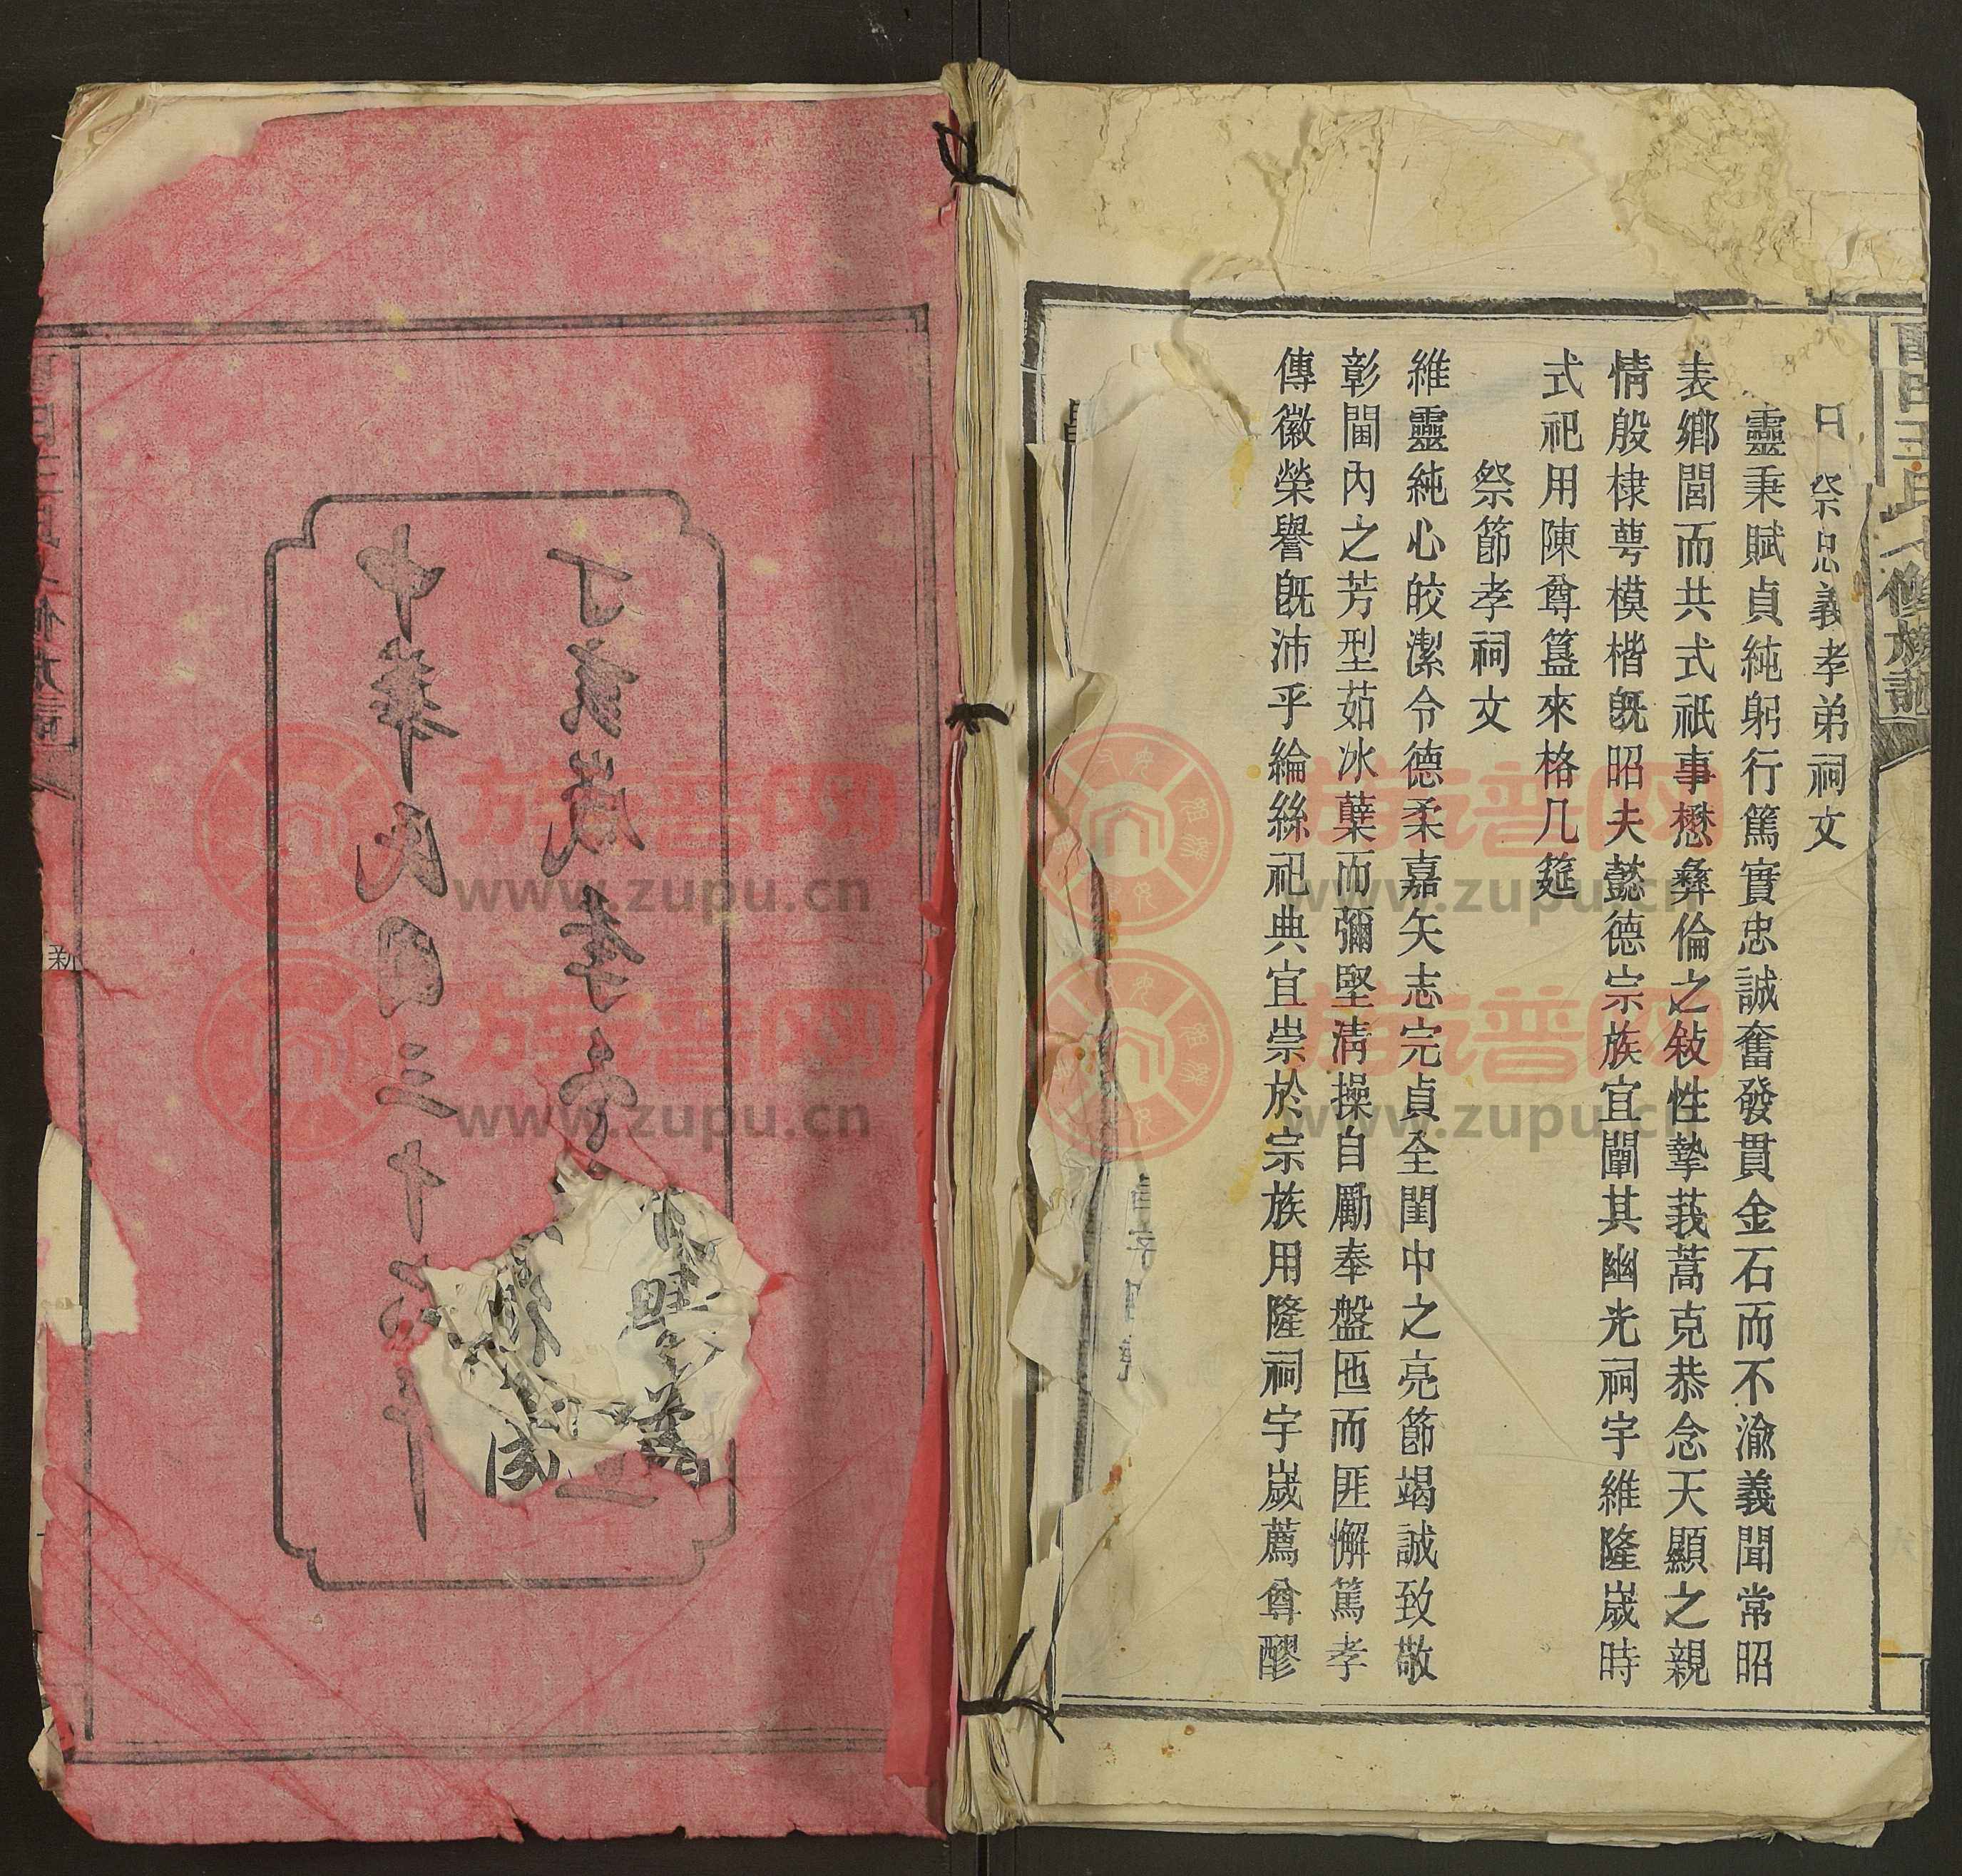 祭忠義孝弟祠文
靈秉賦貞純躬行篤實忠誠奮發貫金石而不渝義聞常昭
表鄉閭而共式祇事懋彝倫之敍性摯莪蒿克恭念天顯之親
情殷棣萼模楷既昭夫懿德宗族宜闡其幽光祠宇維隆歲時
式祀用陳尊簋來格几筵
祭節孝祠文
維靈純心皎潔令德柔嘉矢志完貞全閨中之亮節竭誠致敬
彰閫內之芳型茹冰蘗而彌堅清操自勵奉盤匜而匪懈篤孝
傳徽榮譽既沛乎綸絲祀典宜崇於宗族用隆祠宇歲薦尊醪
王氏 修族譜
丁亥歲季
中華民國三十六年
新
族譜网
www.zupu.cn
族譜网
www.zupu.cn
族譜网
www.zupu.cn
族譜网
www.zupu.cn